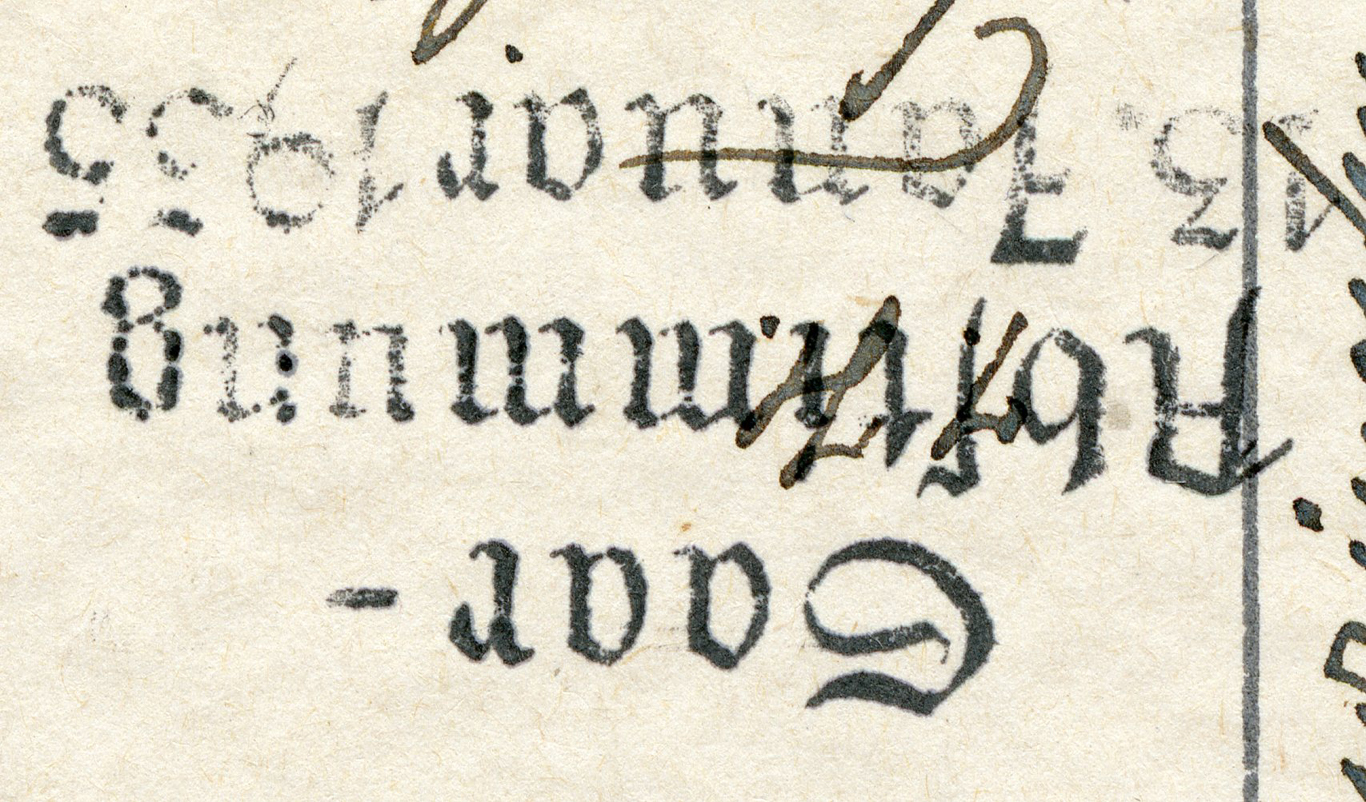 Saar-
Abstimmung
13. Januar 1935